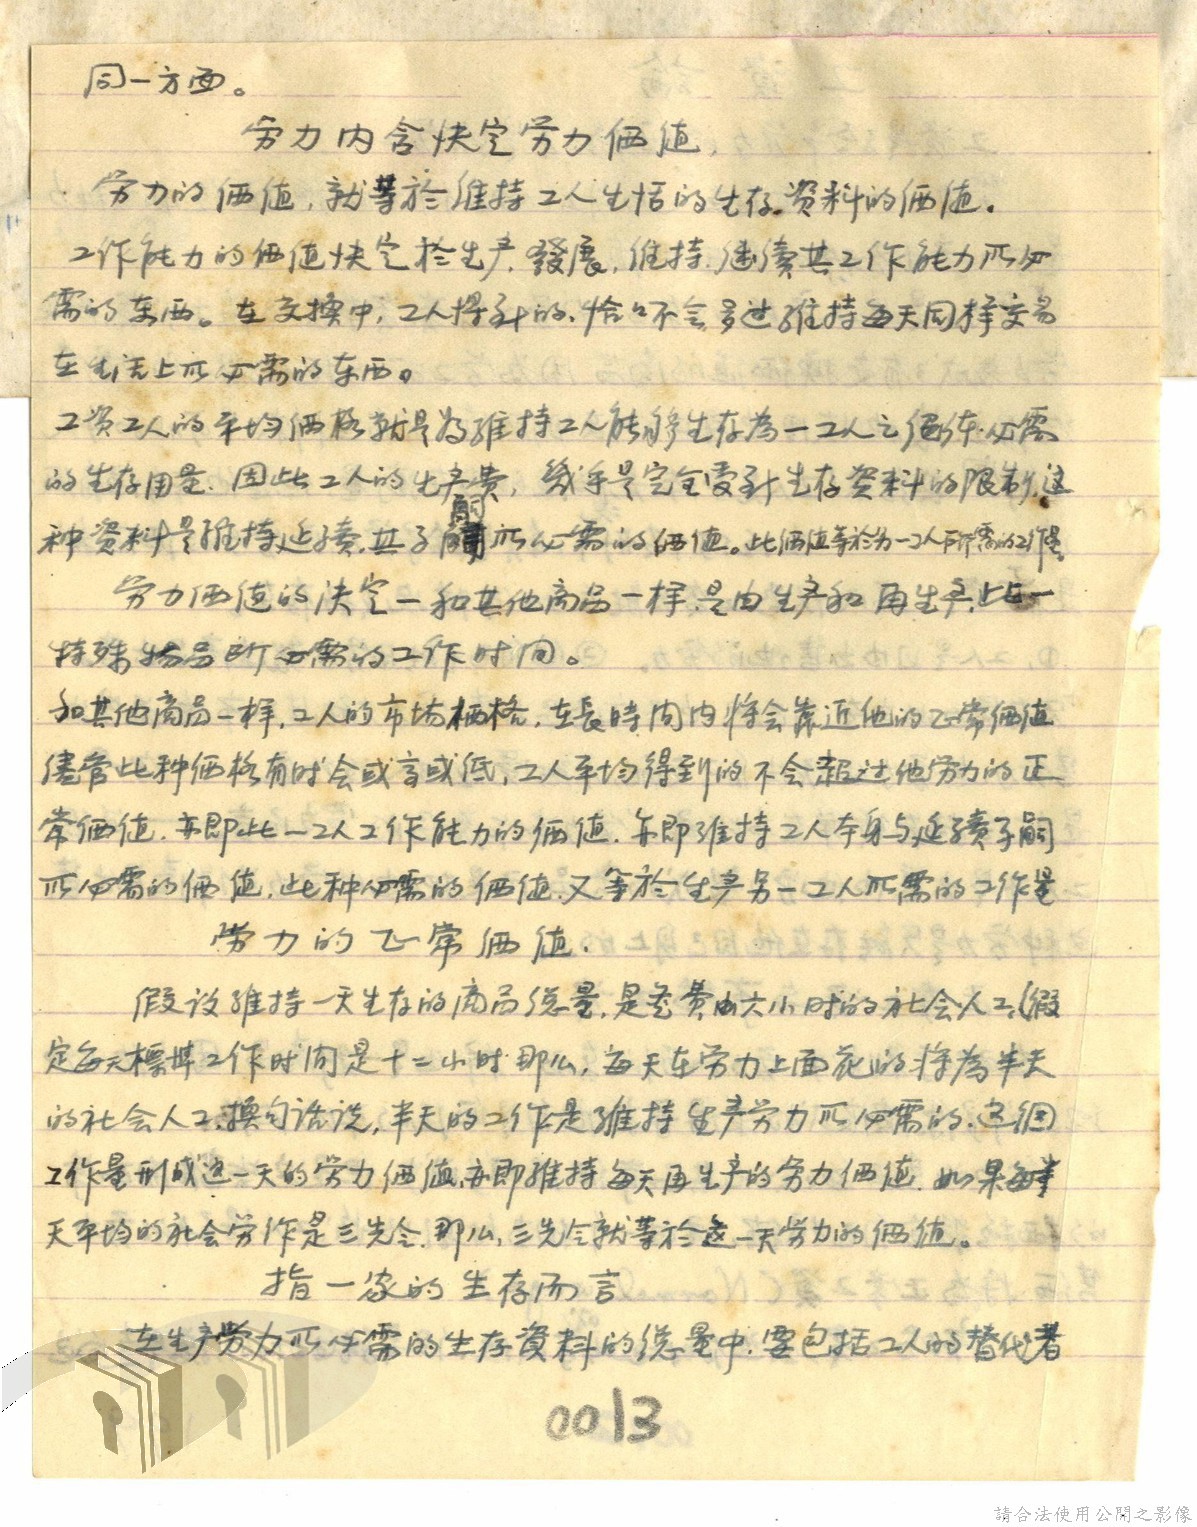 同一方面。
劳力内含快定劳力価値.
劳力的価値,就等於维持工人生活的生存资料的価值。
工作能力的価值快定於生产.發展,维持.继续其工作能力所必
需的东西。在交换中,工人得到的,恰恰不会多过维持每天同样交易
在生活上所必需的东西。
工资工人的平均価格就是为维持工人能够生存為一工人之便本必需
的生存用量.因此工人的生产费,幾乎是完全受到生存资料的限制.这
种资料是维持延续.其子嗣所必需的価值。此価值等於另一工人所需的工作量
劳力価值的决定一和其他商品一样.是由生产和再生产.此一
特殊物品所必需的工作时间。
和其他商品一样,工人的市场価格.在長時间内将会靠近他的正常価值
儘管此种価格有时会或高或低,工人平均得到的不会超过他劳力的正
常価值.亦即此一工人工作能力的価值.亦即维持工人本身与延續子嗣
所必需的価值.此种必需的価值.又等於生产另一工人所需的工作量
劳力的正常価值.
假设维持一天生存的商品总量,是花费由六小时的社会人工,(假
定每天標準工作时间是十二小时.那么,每天在劳力上面花的将為半天
的社会人工.换句话说,半天的工作是维持生产劳力所必需的.这個
工作量形成这一天的劳力価值.亦即维持每天再生产的劳力価值.如果每半
天平均的社会劳作是三先令.那么,三先令就等於这一天劳力的価值。
指一家的生存而言
在生产劳力所必需的生存資料的总量中.要包括工人的替代者
0013
請合法使用公開之影像